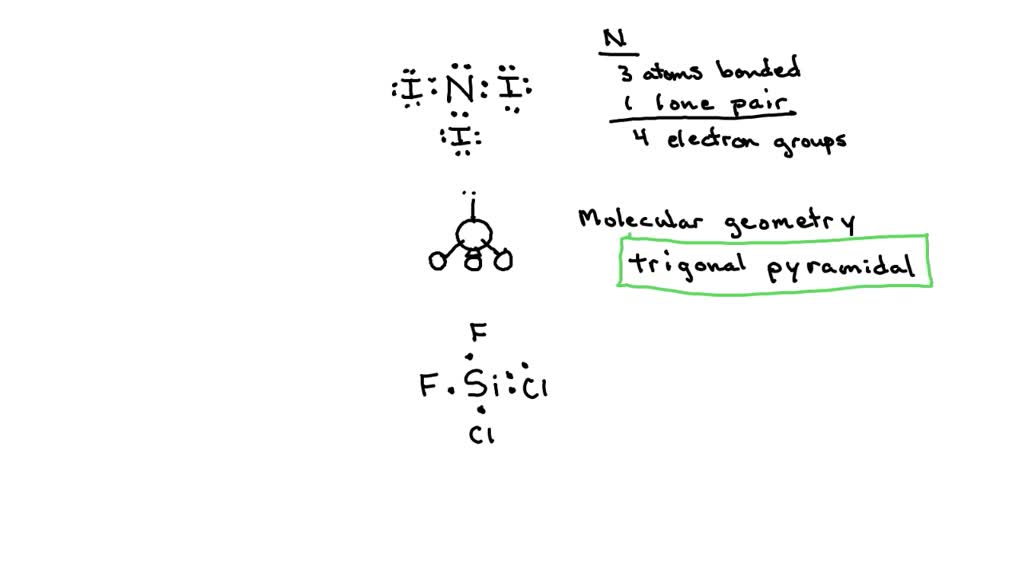 N
3 atoms bonded
:Ï: N : I:
1 lone pair
:I:
4 electron groups
Molecular geometry
trigonal pyramidal
F
F . Si : Cl
Cl